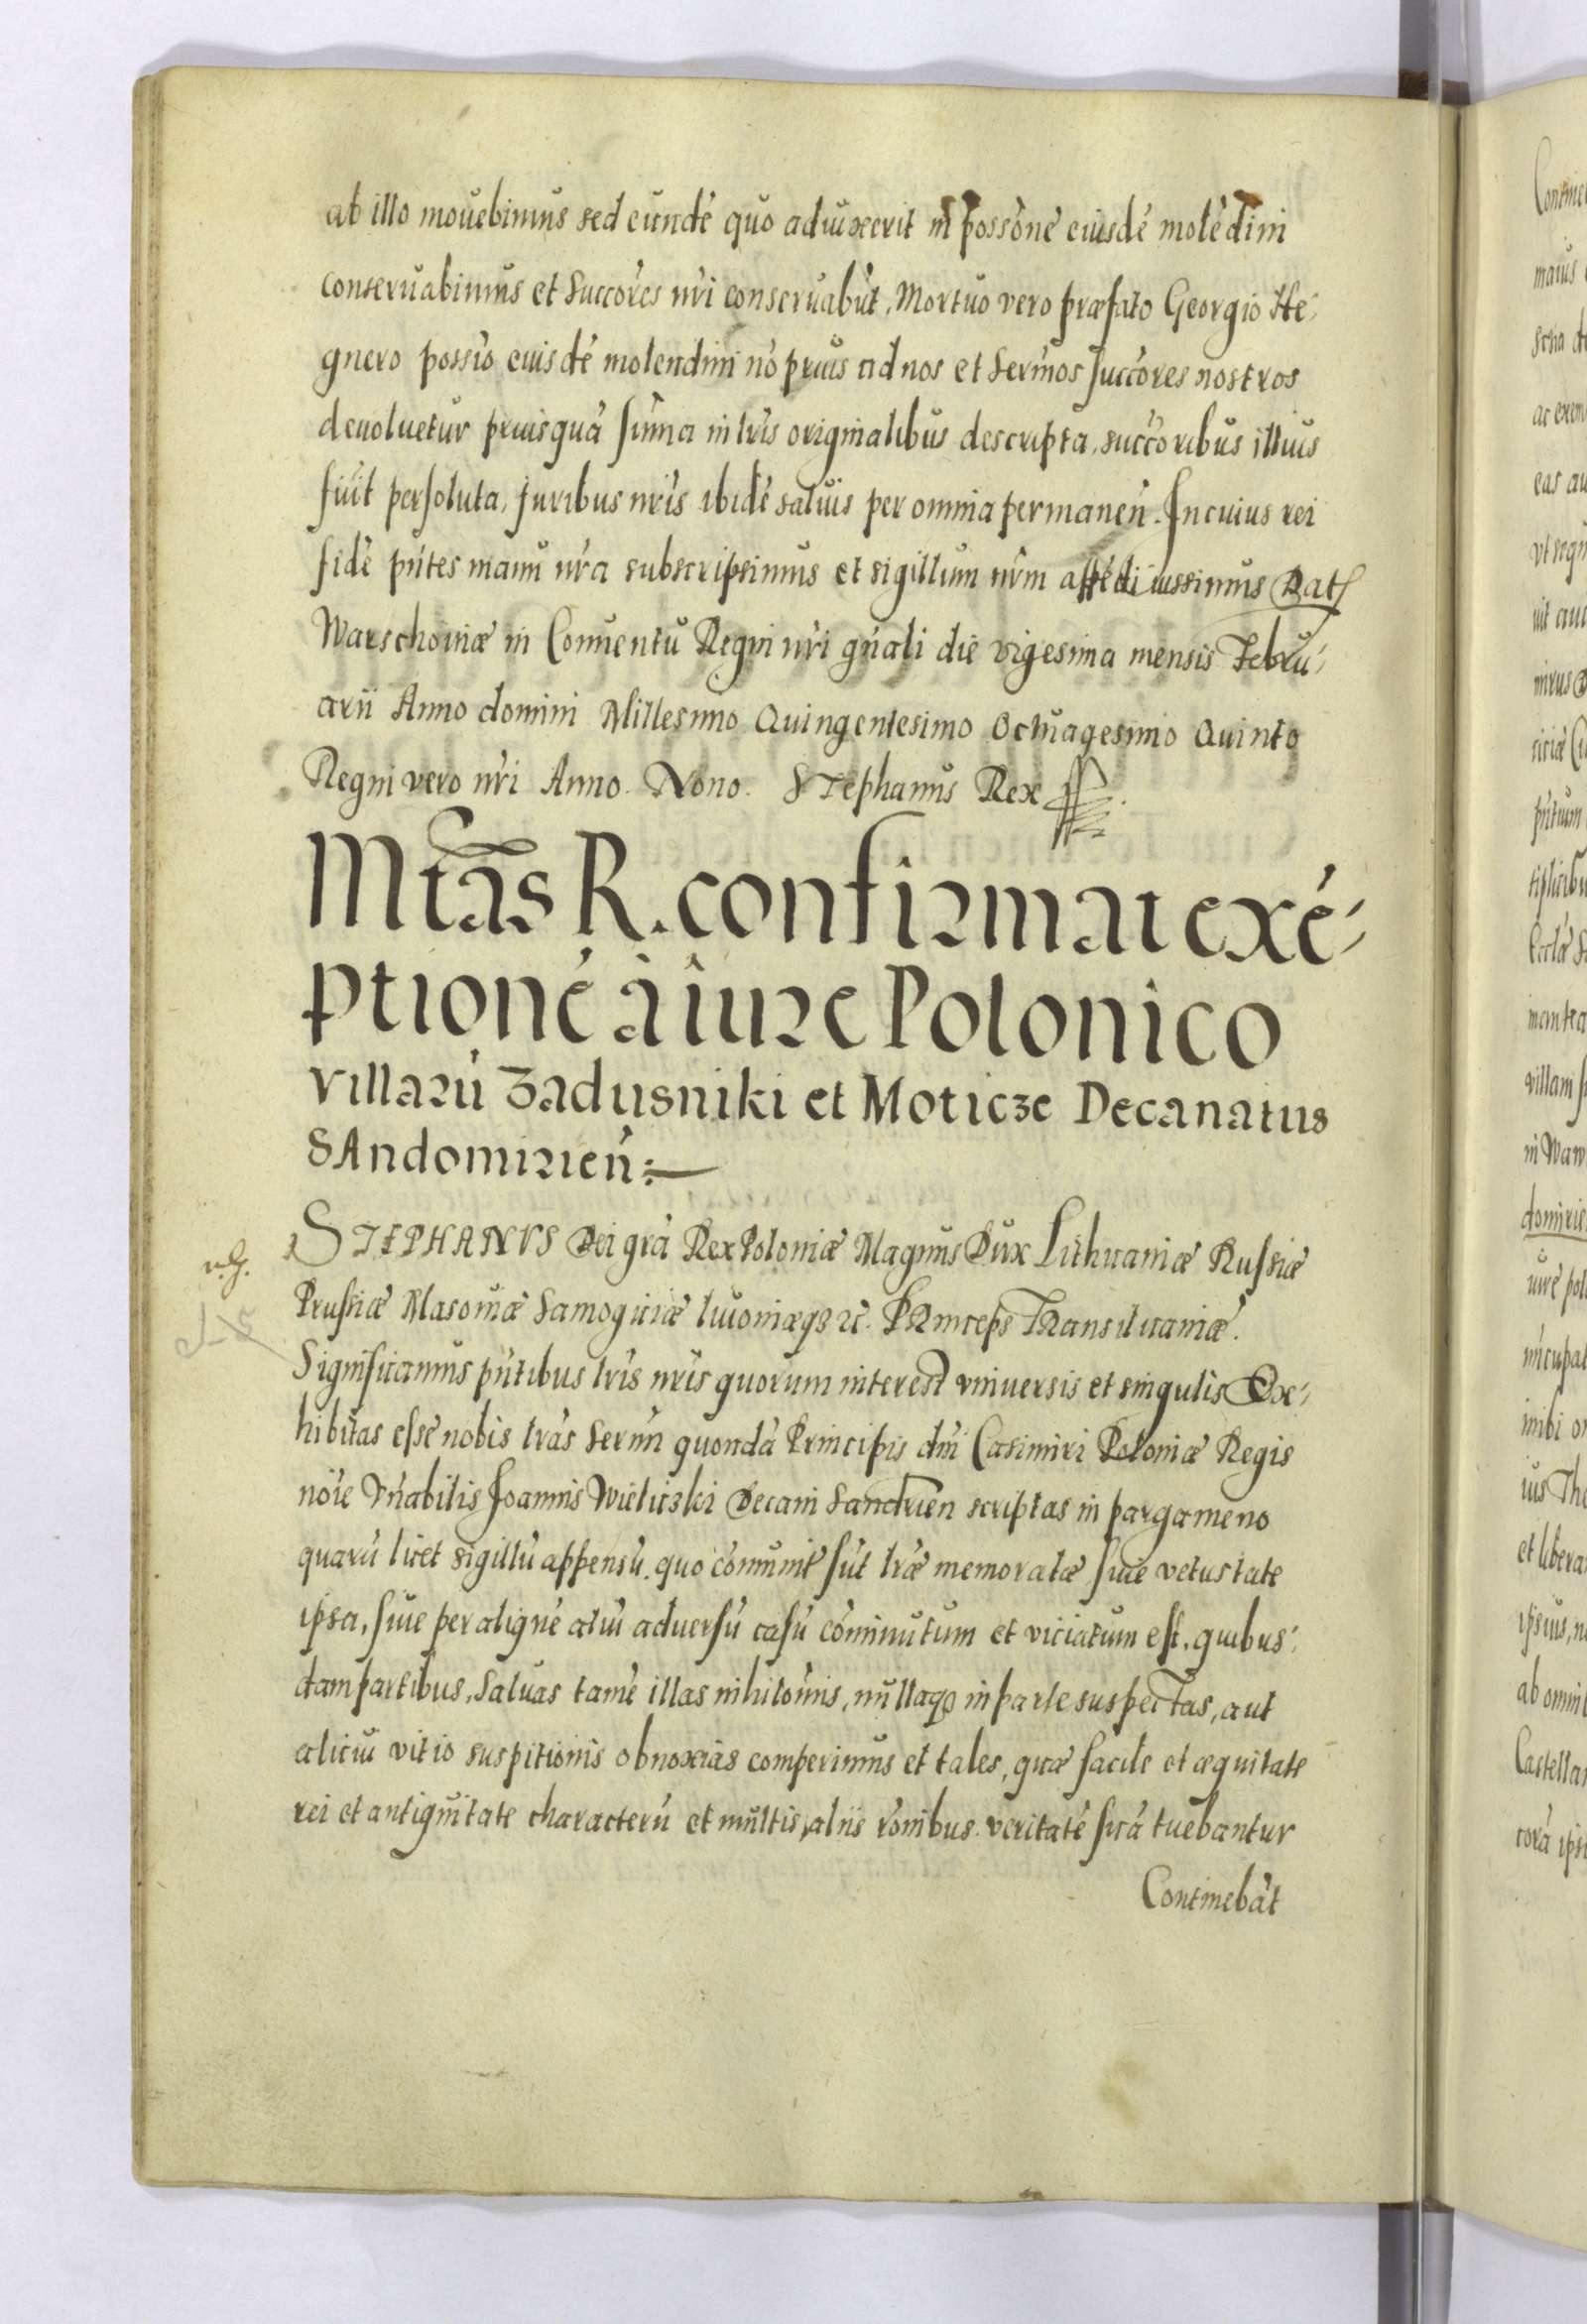 ab illo mouebimus sed eundē quo aduixerit in possōnē eiusdē molēdini
conseruabimus et succōres nr̄i conseruabūt. Mortuo vero præfato Georgio He-
gnero possio eiusdē molendini nō prius ad nos et Sermōs succōres nostros
deuoluetur priusquā sūma in lr̄is originalibus descripta, succōribus illius
fuīt persoluta, Juribus nr̄is ibidē saluis per omnia permaneñ. In cuius rei
fidē pn̄tes manu nr̄a subscripsimus et sigillum nr̄m appēdi iussimus Dat
Warschouiæ in Conuentu Regni nr̄i gn̄ali die vigesima mensis Febru-
arii Anno domini Millesimo Quingentesimo Octuagesimo Quinto
Regni vero nr̄i Anno. Nono. Stephanus Rex
Mtas R. confirmat exē-
ptionē à iure Polonico
villarū Zadusniki et Moticze Decanatus
SAndomirień:
STEPHANVS Dei grā Rex Poloniæ Magnus Dux Lithuaniæ Russiæ
v.g.
Prussiæ Masouiæ Samogitiæ liuoniæqȝ ꝛc. PRinceps TRansiluaniæ.
Significamus pn̄tibus lr̄is nr̄is quorum interest vniuersis et singulis Ex-
hibitas esse nobis lrās Serm̄i quondā Principis dn̄i Casimiri Poloniæ Regis
nōie Vn̄abilis Joannis Wieliczki Decani Sandrien scriptas in pargameno
quarū licet sigillū appensū, quo cōmunitę sūt lr̄æ memoratæ siue vetustate
ipsa, siue per aliquē aliū aduersū casū cōminutum et viciatum est, quibus-
dam partibus, Saluas tamē illas nihilōmis, nullaqȝ in parte suspectas, aut
alicui vitio suspitionis obnoxias comperimus et tales, quæ facile et æquitate
rei et antiquitate characterū et multis, aliis rōnibus veritatē suā tuebantur
Continebāt